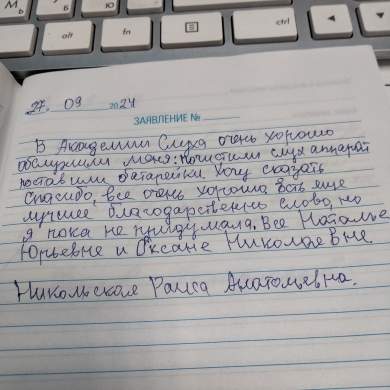 alt
fn
ctrl
27. 09 2024
ЗАЯВЛЕНИЕ №
В Академии Слуха очень хорошо
обслужили меня: почистили слух аппарат
поставили батарейки Хочу сказать
спасибо, все очень хорошо Есть еще
лучшее благодарственные слова, но
я пока не придумала. Все Наталье
Юрьевне и Оксане Николаевне
Никольская Раиса Анатольевна.